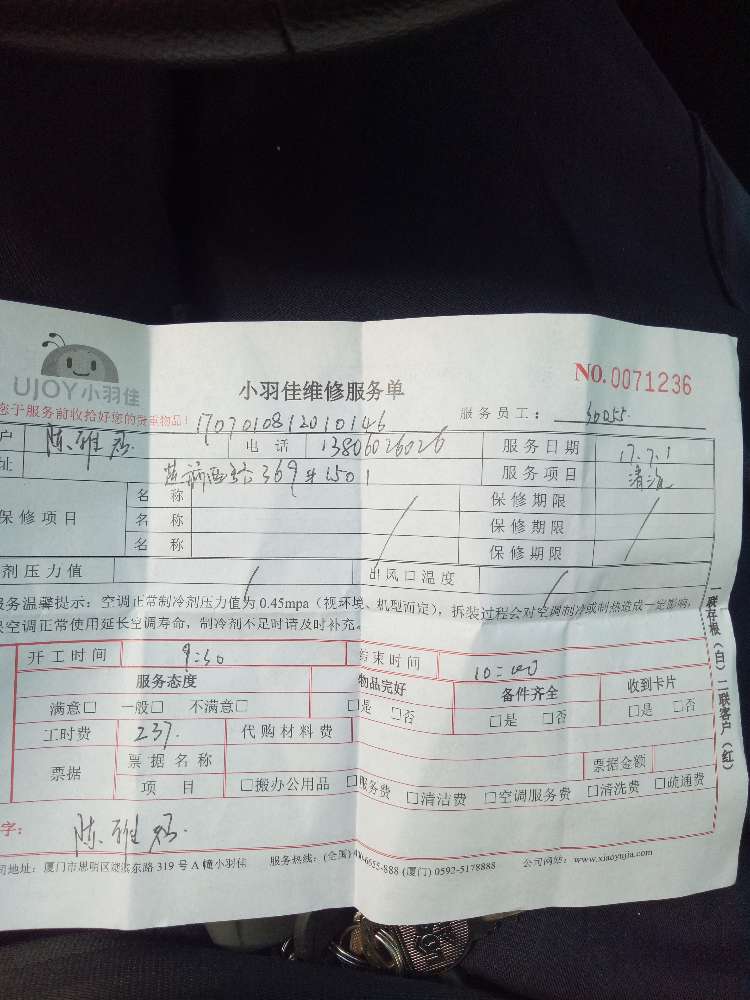 UJOY小羽佳
小羽佳维修服务单
NO.0071236
您于服务前收拾好您的贵重物品!
1707010812010146
服务员工：
户 陈雅 电话 13806026026 服务日期 17.7.1
址 369 1501 服务项目 清洗
保修项目 名称 保修期限
名称 保修期限
名称 保修期限
剂压力值 出风口温度
服务温馨提示：空调正常制冷剂压力值为 0.45mpa（视环境、机型而定），拆装过程会对空调制冷或制热造成一定影响，
空调正常使用延长空调寿命，制冷剂不足时请及时补充。
一联存根（白）二联客户（红）
开工时间 9:30 结束时间 10:40
服务态度 物品完好 备件齐全 收到卡片
满意□ 一般□ 不满意□ □是 □否 □是 □否 □是 □否
工时费 237. 代购材料费
票据 票据名称 票据金额
项目 □搬办公用品 □服务费 □清洁费 □空调服务费 □清洗费 □疏通费
字： 陈雅
司地址：厦门市思明区 东路 319 号 A 幢小羽佳 服务热线：(全国) 6655-888 (厦门) 0592-5178888 公司网站：www.xiaoyujia.com